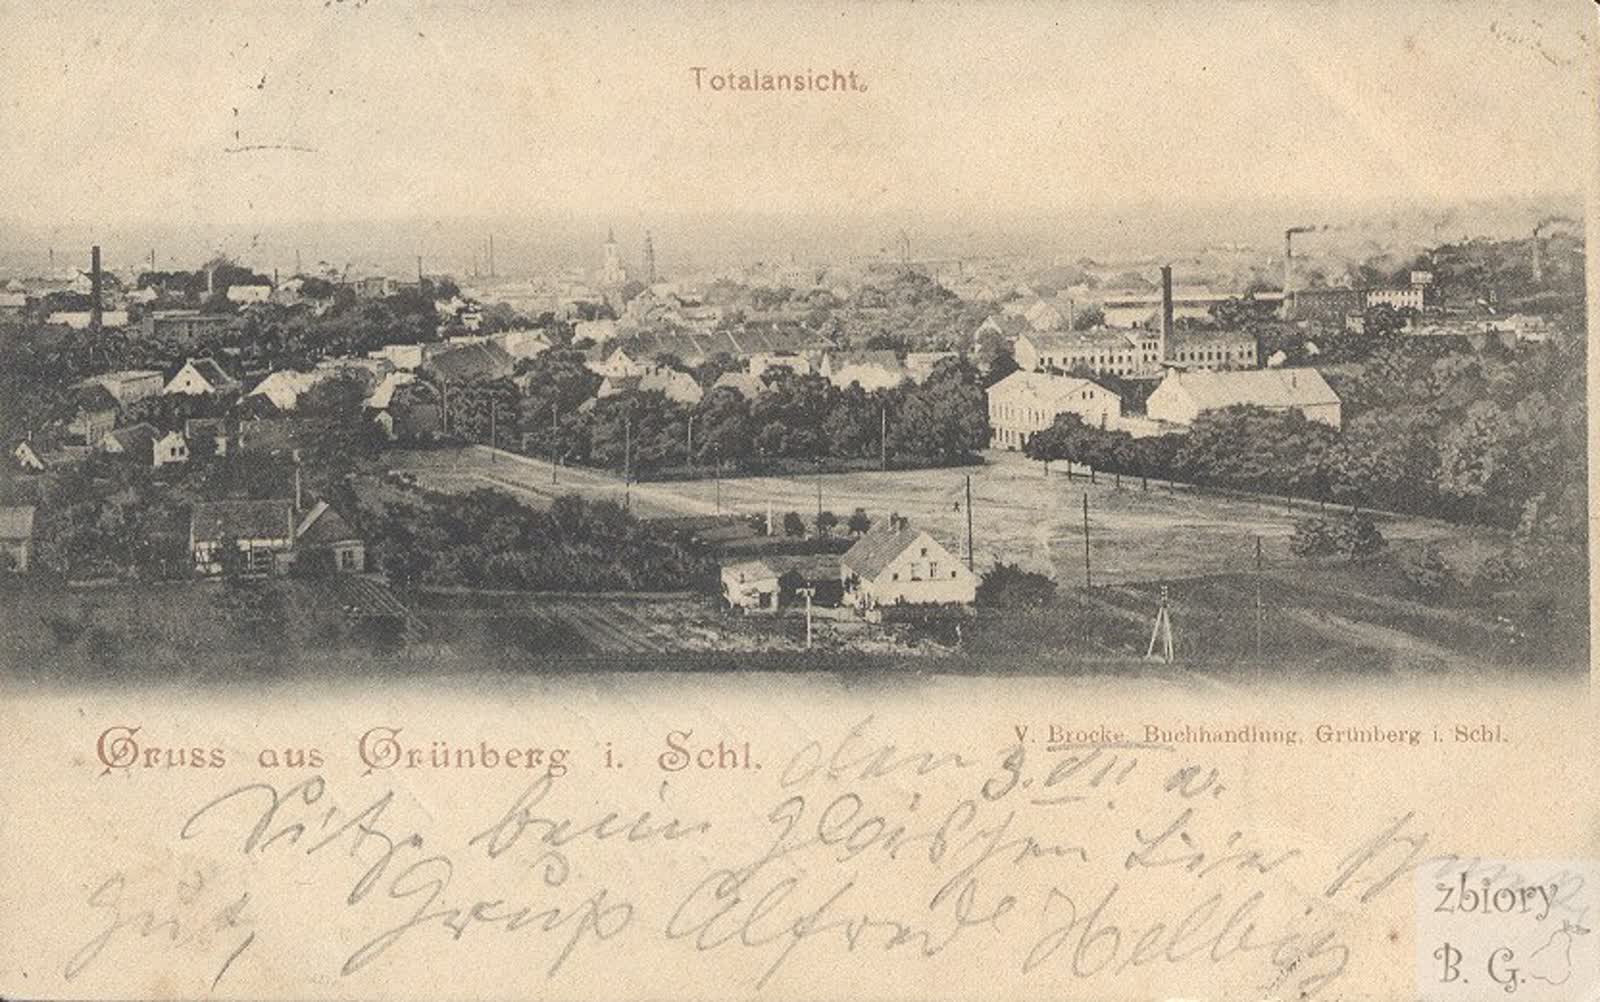 Totalansicht.
Gruss aus Grünberg i. Schl.
V. Brocke, Buchhandlung, Grünberg i. Schl.
den 3. VII
Sitze beim Gläschen Bier
gut, Gruß Alfred Helbig
zbiory
B. G.